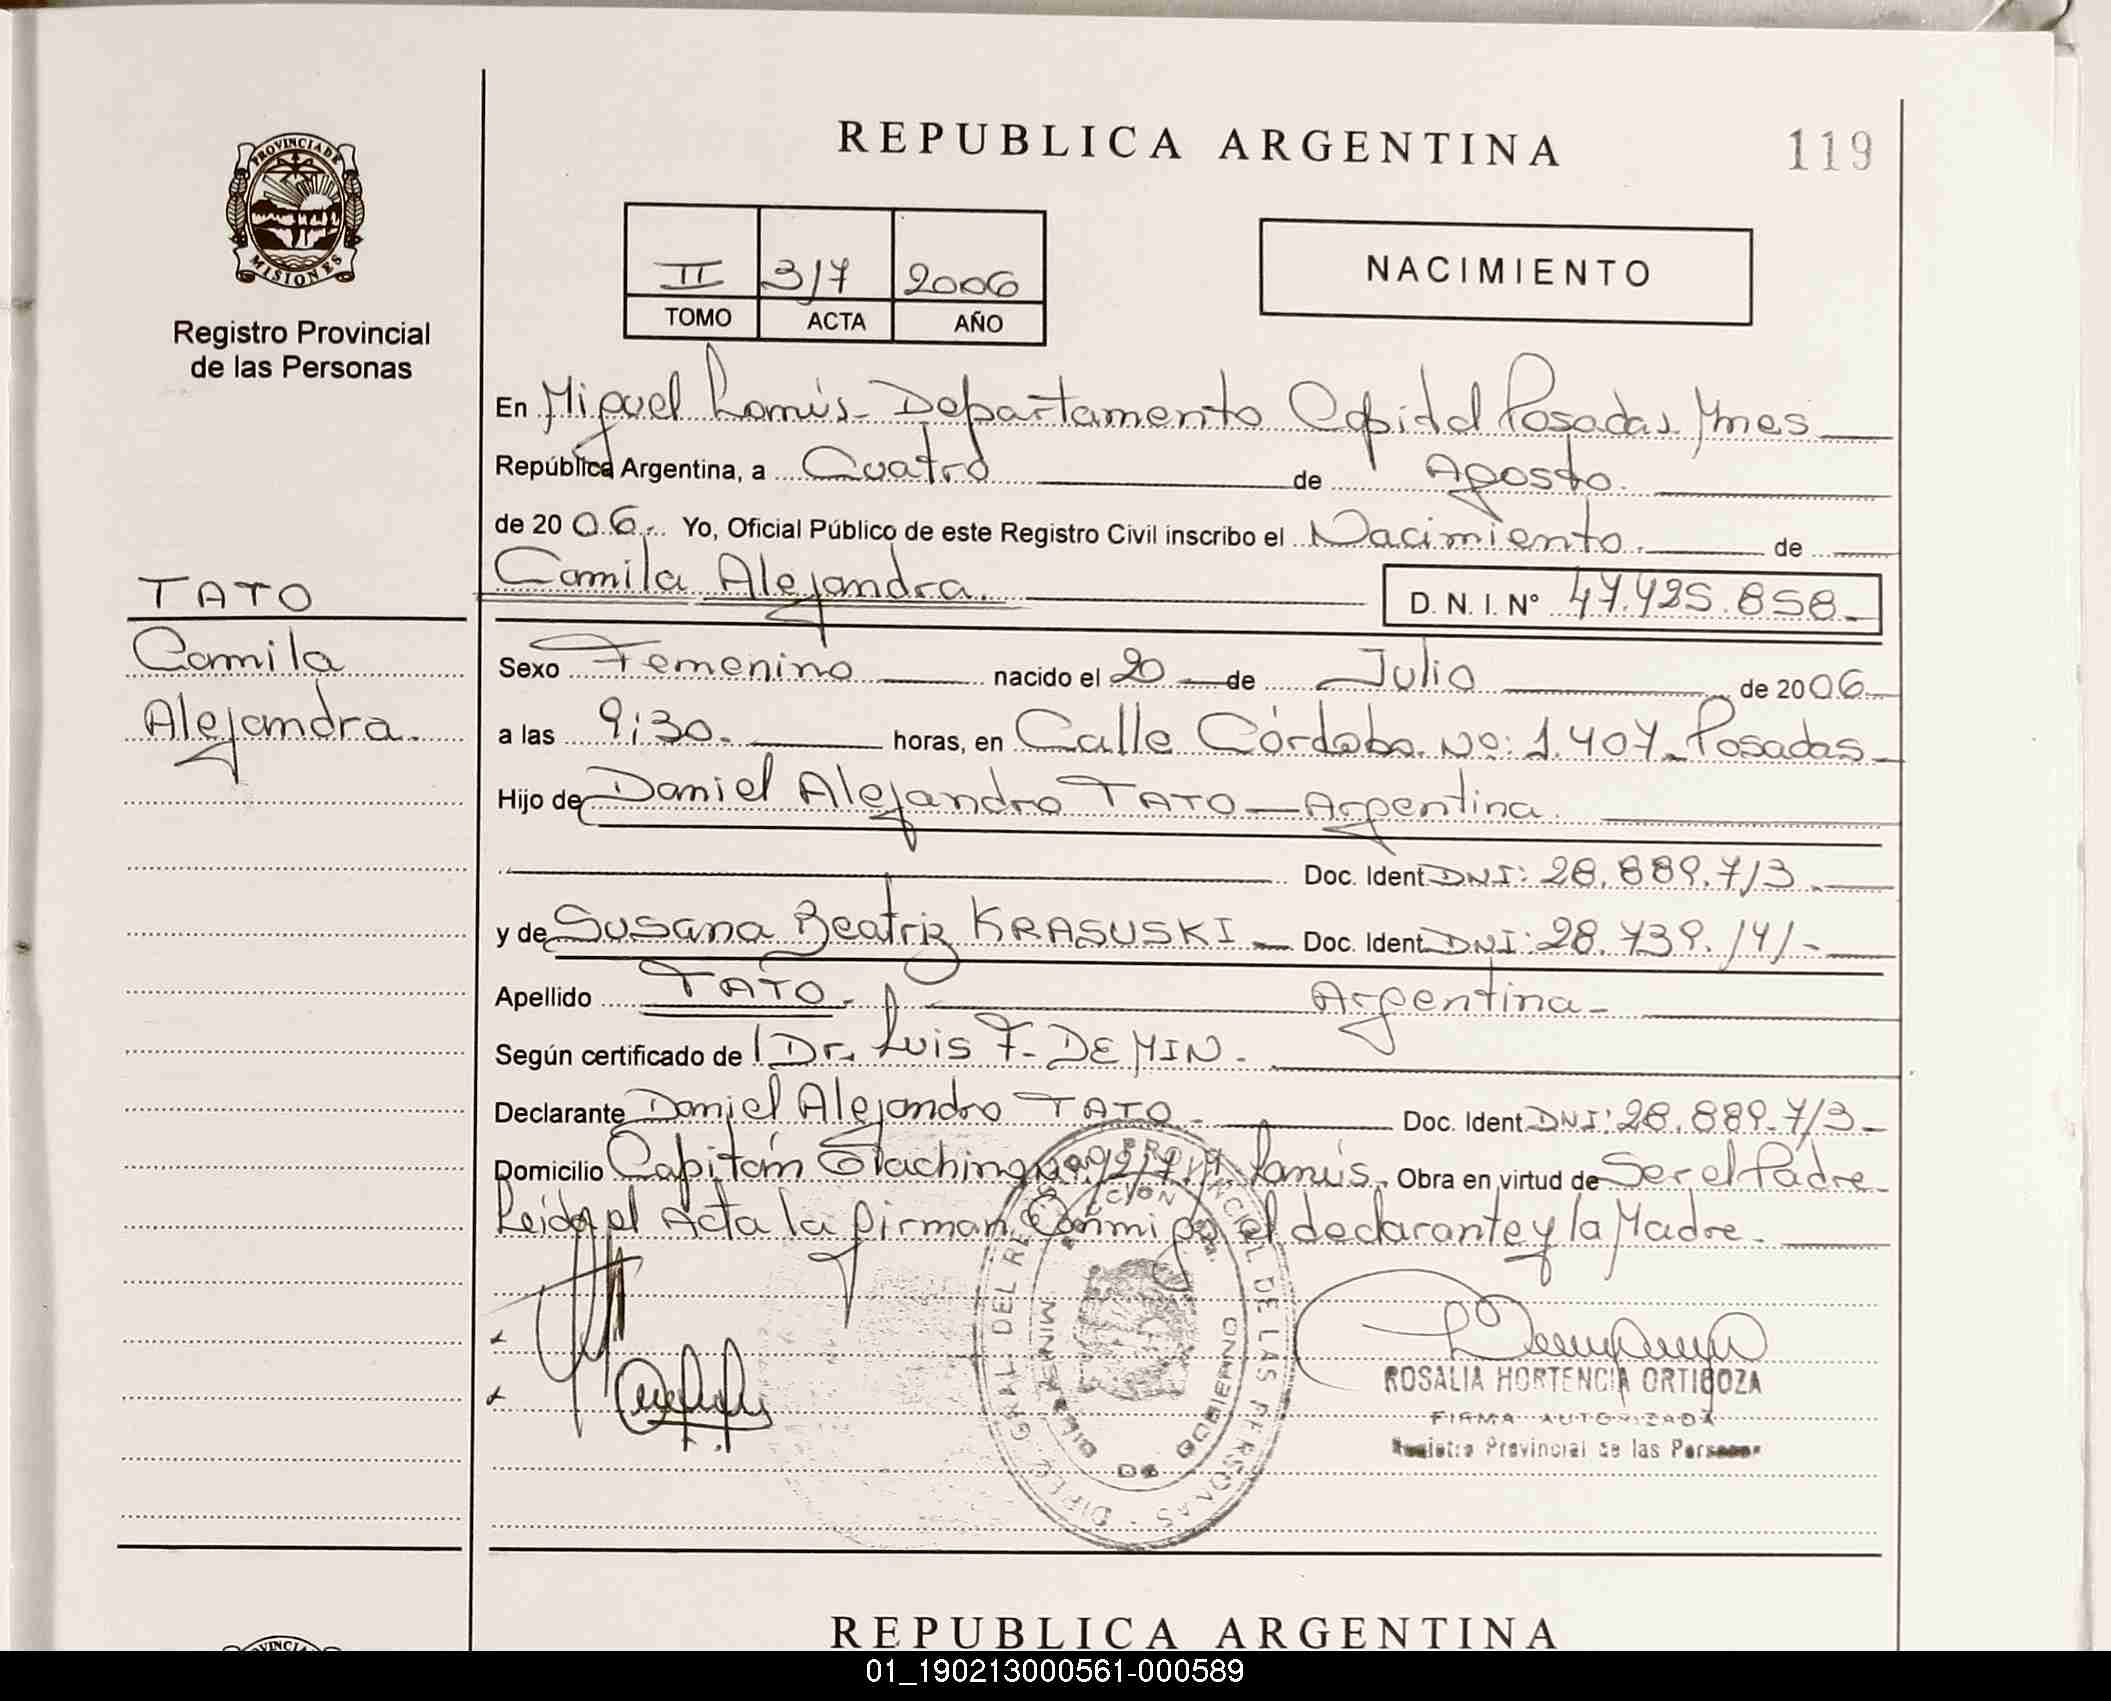 REPUBLICA ARGENTINA
119
PROVINCIA DE
MISIONES
Registro Provincial
de las Personas
II 317 2006
TOMO ACTA AÑO
NACIMIENTO
En Miguel Lanús - Departamento Capital Posadas Mnes
República Argentina, a Cuatro de Agosto.
de 2006.- Yo, Oficial Público de este Registro Civil inscribo el Nacimiento. de
Camila Alejandra. D. N. I. Nº 47.425.858.-
TATO
Camila
Alejandra.
Sexo Femenino nacido el 20 de Julio de 2006
a las 9:30. horas, en Calle Córdoba Nº: 1.407- Posadas
Hijo de Daniel Alejandro TATO - Argentina.
Doc. Ident. DNI: 28.889.713.
y de Susana Beatriz KRASUSKI - Doc. Ident. DNI: 28.739.141.-
Apellido TATO.- Argentina-
Según certificado de Dr. Luis F. DEMIN.
Declarante Daniel Alejandro TATO Doc. Ident. DNI: 28.889.713-
Domicilio Capitán Lanús. Obra en virtud de Ser el Padre
Leída el Acta la firman Conmigo el declarante y la Madre.
DE LAS PERSONAS
MINISTERIO DE GOBIERNO
ROSALIA HORTENCIA ORTIGOZA
FIRMA AUTORIZADA
Registro Provincial de las Personas
REPUBLICA ARGENTINA
01_190213000561-000589